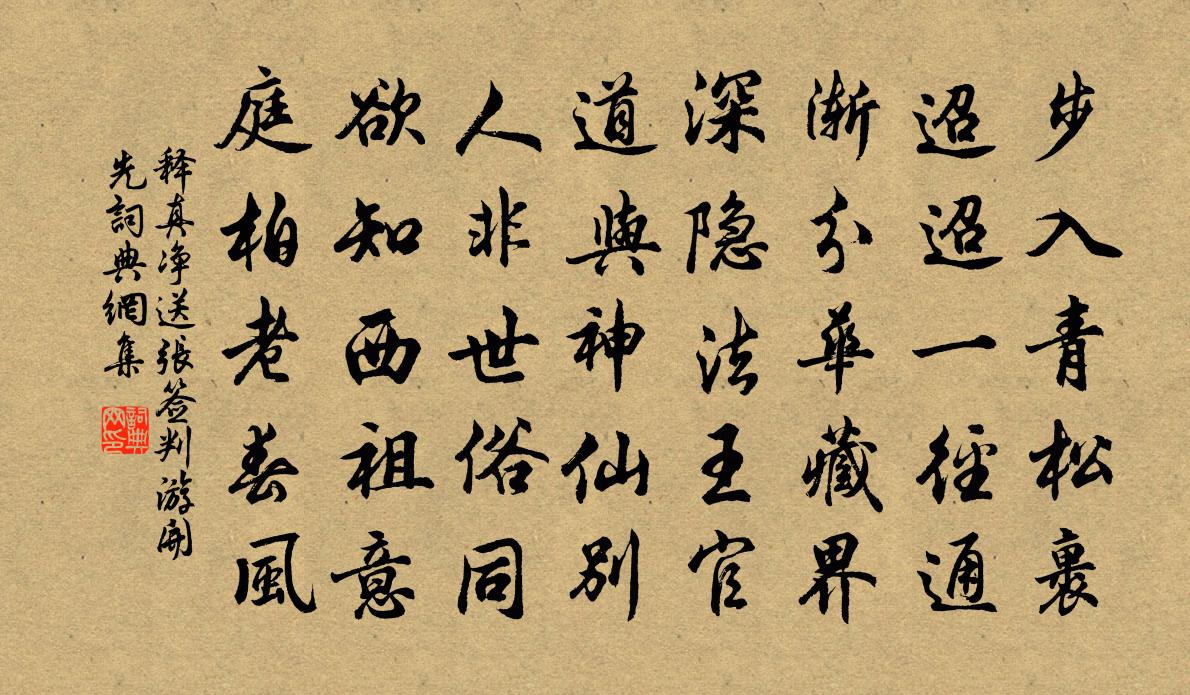 步入青松裏
迢迢一徑通
漸分華藏界
深隐法王官
道與神仙别
人非世俗同
欲知西祖意
庭柏老春風
释真净送張签判游開
先詞典網集
詞典网印